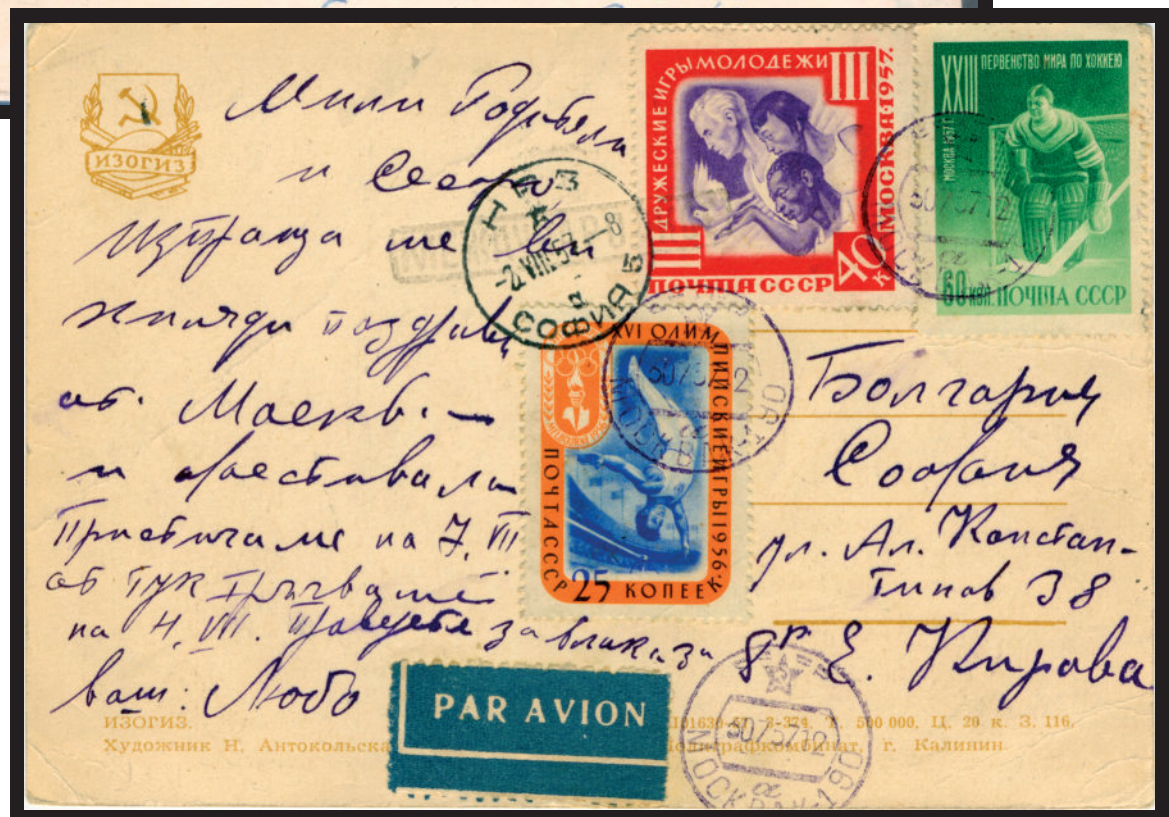 ИЗОГИЗ
Мили Родители
и Сестро
изпраща ме Ви
хиляди поздрави
от Москва –
и фестивала
Пристигаме на 7. VIII
от тук тръгваме
на 4. VIII. за влака за
ваш: Любо
ДРУЖЕСКИЕ ИГРЫ МОЛОДЕЖИ III
МОСКВА·1957.
III
ПОЧТА СССР
40 к
XXIII ПЕРВЕНСТВО МИРА ПО ХОККЕЮ
МОСКВА 1957 г.
60 коп. ПОЧТА СССР
XVI ОЛИМПИЙСКИЕ ИГРЫ 1956.
МЕЛЬБУРН 1956
ПОЧТА СССР
25 КОПЕЕК
-2.VIII.57-8
СОФИЯ
30.7.57.12
МОСКВА
30.7.57.12
МОСКВА
Болгария
София
ул. Ал. Констан-
тинов 38
д-р Е. Кирова
PAR AVION
30.7.57.12
МОСКВА
ИЗОГИЗ.
Т. 500 000. Ц. 20 к. З. 116.
Художник Н. Антокольска
Полиграфкомбинат, г. Калинин.